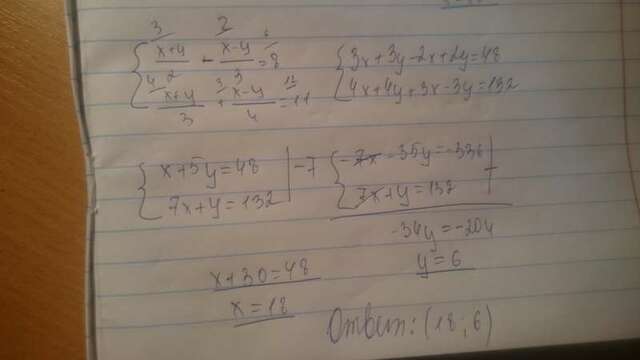 { (x+y)/2 - (x-y)/3 = 8
{ (x+y)/3 + (x-y)/4 = 11
{ 3x+3y-2x+2y=48
{ 4x+4y+3x-3y=132
{ x+5y=48 | -7
{ 7x+y=132
{ -7x-35y=-336
{ 7x+y=132 | +
-34y=-204
y=6
x+30=48
x=18
Ответ: (18; 6)